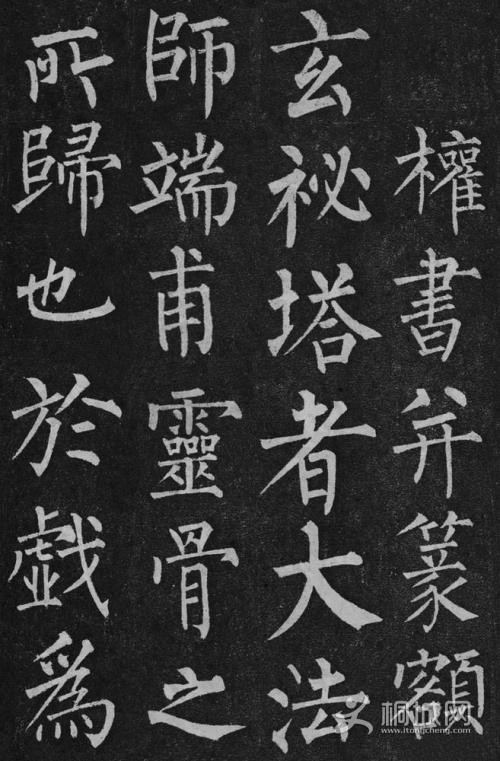 權書并篆額
玄祕塔者大法
師端甫靈骨之
所歸也於戲為
桐城网
www.itongcheng.com